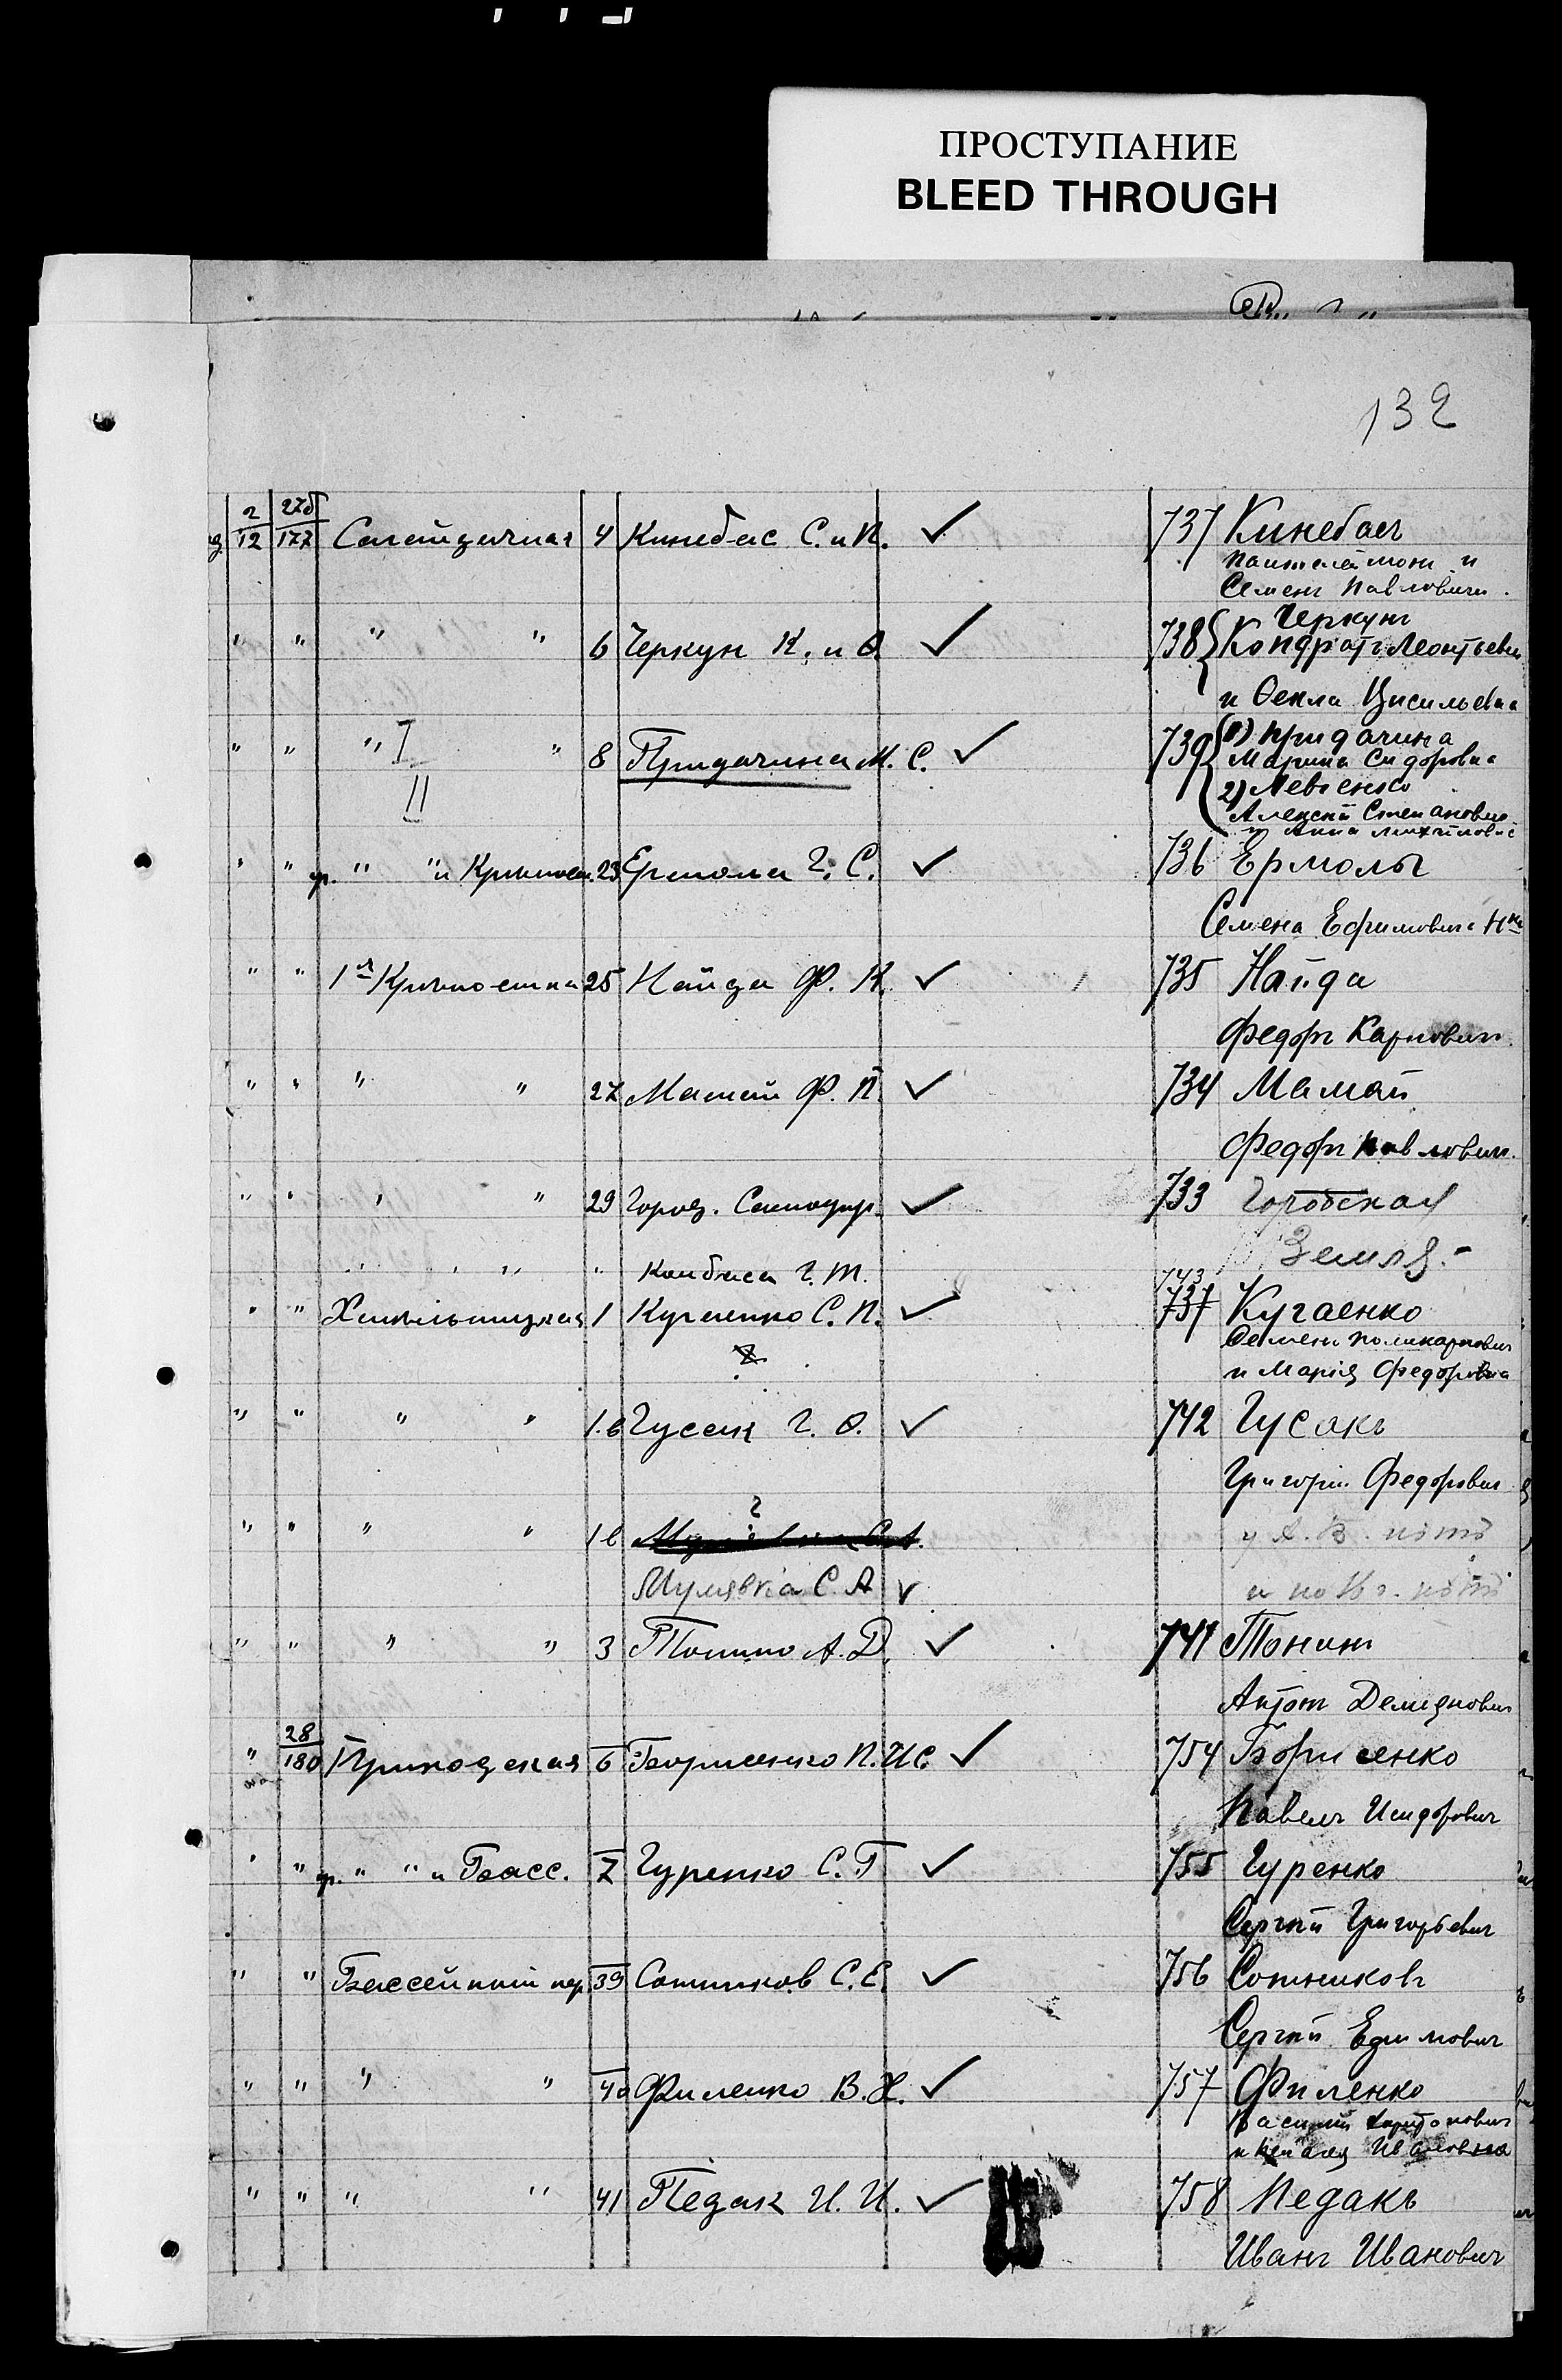 ПРОСТУПАНИЕ
BLEED THROUGH
132
2/12 27б/177 4 Кинебас С. и П. ✓ 737 Кинебасъ
Пантелеймон и
Семенъ Павловичи.
" " " " 6 Черкун К. и Ѳ. ✓ 738 Черкунъ
Кондратъ Леонтьевич
и Ѳекла
" " " I " 8 Придачина М. С. ✓ 739 1) Придачина
II Марина Сидоровна
2) Левченко
Алексѣй Степанович
и Анна
" " уг. " " и 23 Ермола Г. С. ✓ 736 Ермолы
Семена Ефимовича Нки
" " 1я Крѣпостная 25 Найда Ф. К. ✓ 735 Найда
Федоръ Карпович.
" " " " 27 Мамай Ф. П. ✓ 734 Мамай
Федоръ Павлович.
" " " " 29 Город. ✓ 733 Городская
Земля.-
" " " " Г. Т.
743
" " Хмельницкая 1 С. П. ✓ 737 Кугаенко
Семенъ Поликарпович
и Марія Федоровна
" " " " 1.б Гусак Г. Ѳ. ✓ 742 Гусакъ
Григорій Федорович
" " " " 1в у А. В. нѣтъ
С. А ✓ и по нѣтъ
" " " " 3 А. Д. ✓ 741 Тонинъ
Антон Демянович
" 28/180 Приходская 6 Борисенко П. И С. ✓ 754 Борисенко
Павелъ Исидорович
" " уг. " " и Басс. 7 Гуренко С. Г ✓ 755 Гуренко
Сергѣй Григорьевич
" " Бассейный пер. 39 Сотников С. Е. ✓ 756 Сотниковъ
Сергѣй Ефимович
" " " " 40 Филенко В. Х. ✓ 757 Филенко
Василій Харитонович
и Ивановна
" " " " 41 Педак И. И. ✓ 758 Педакъ
Иванъ Иванович